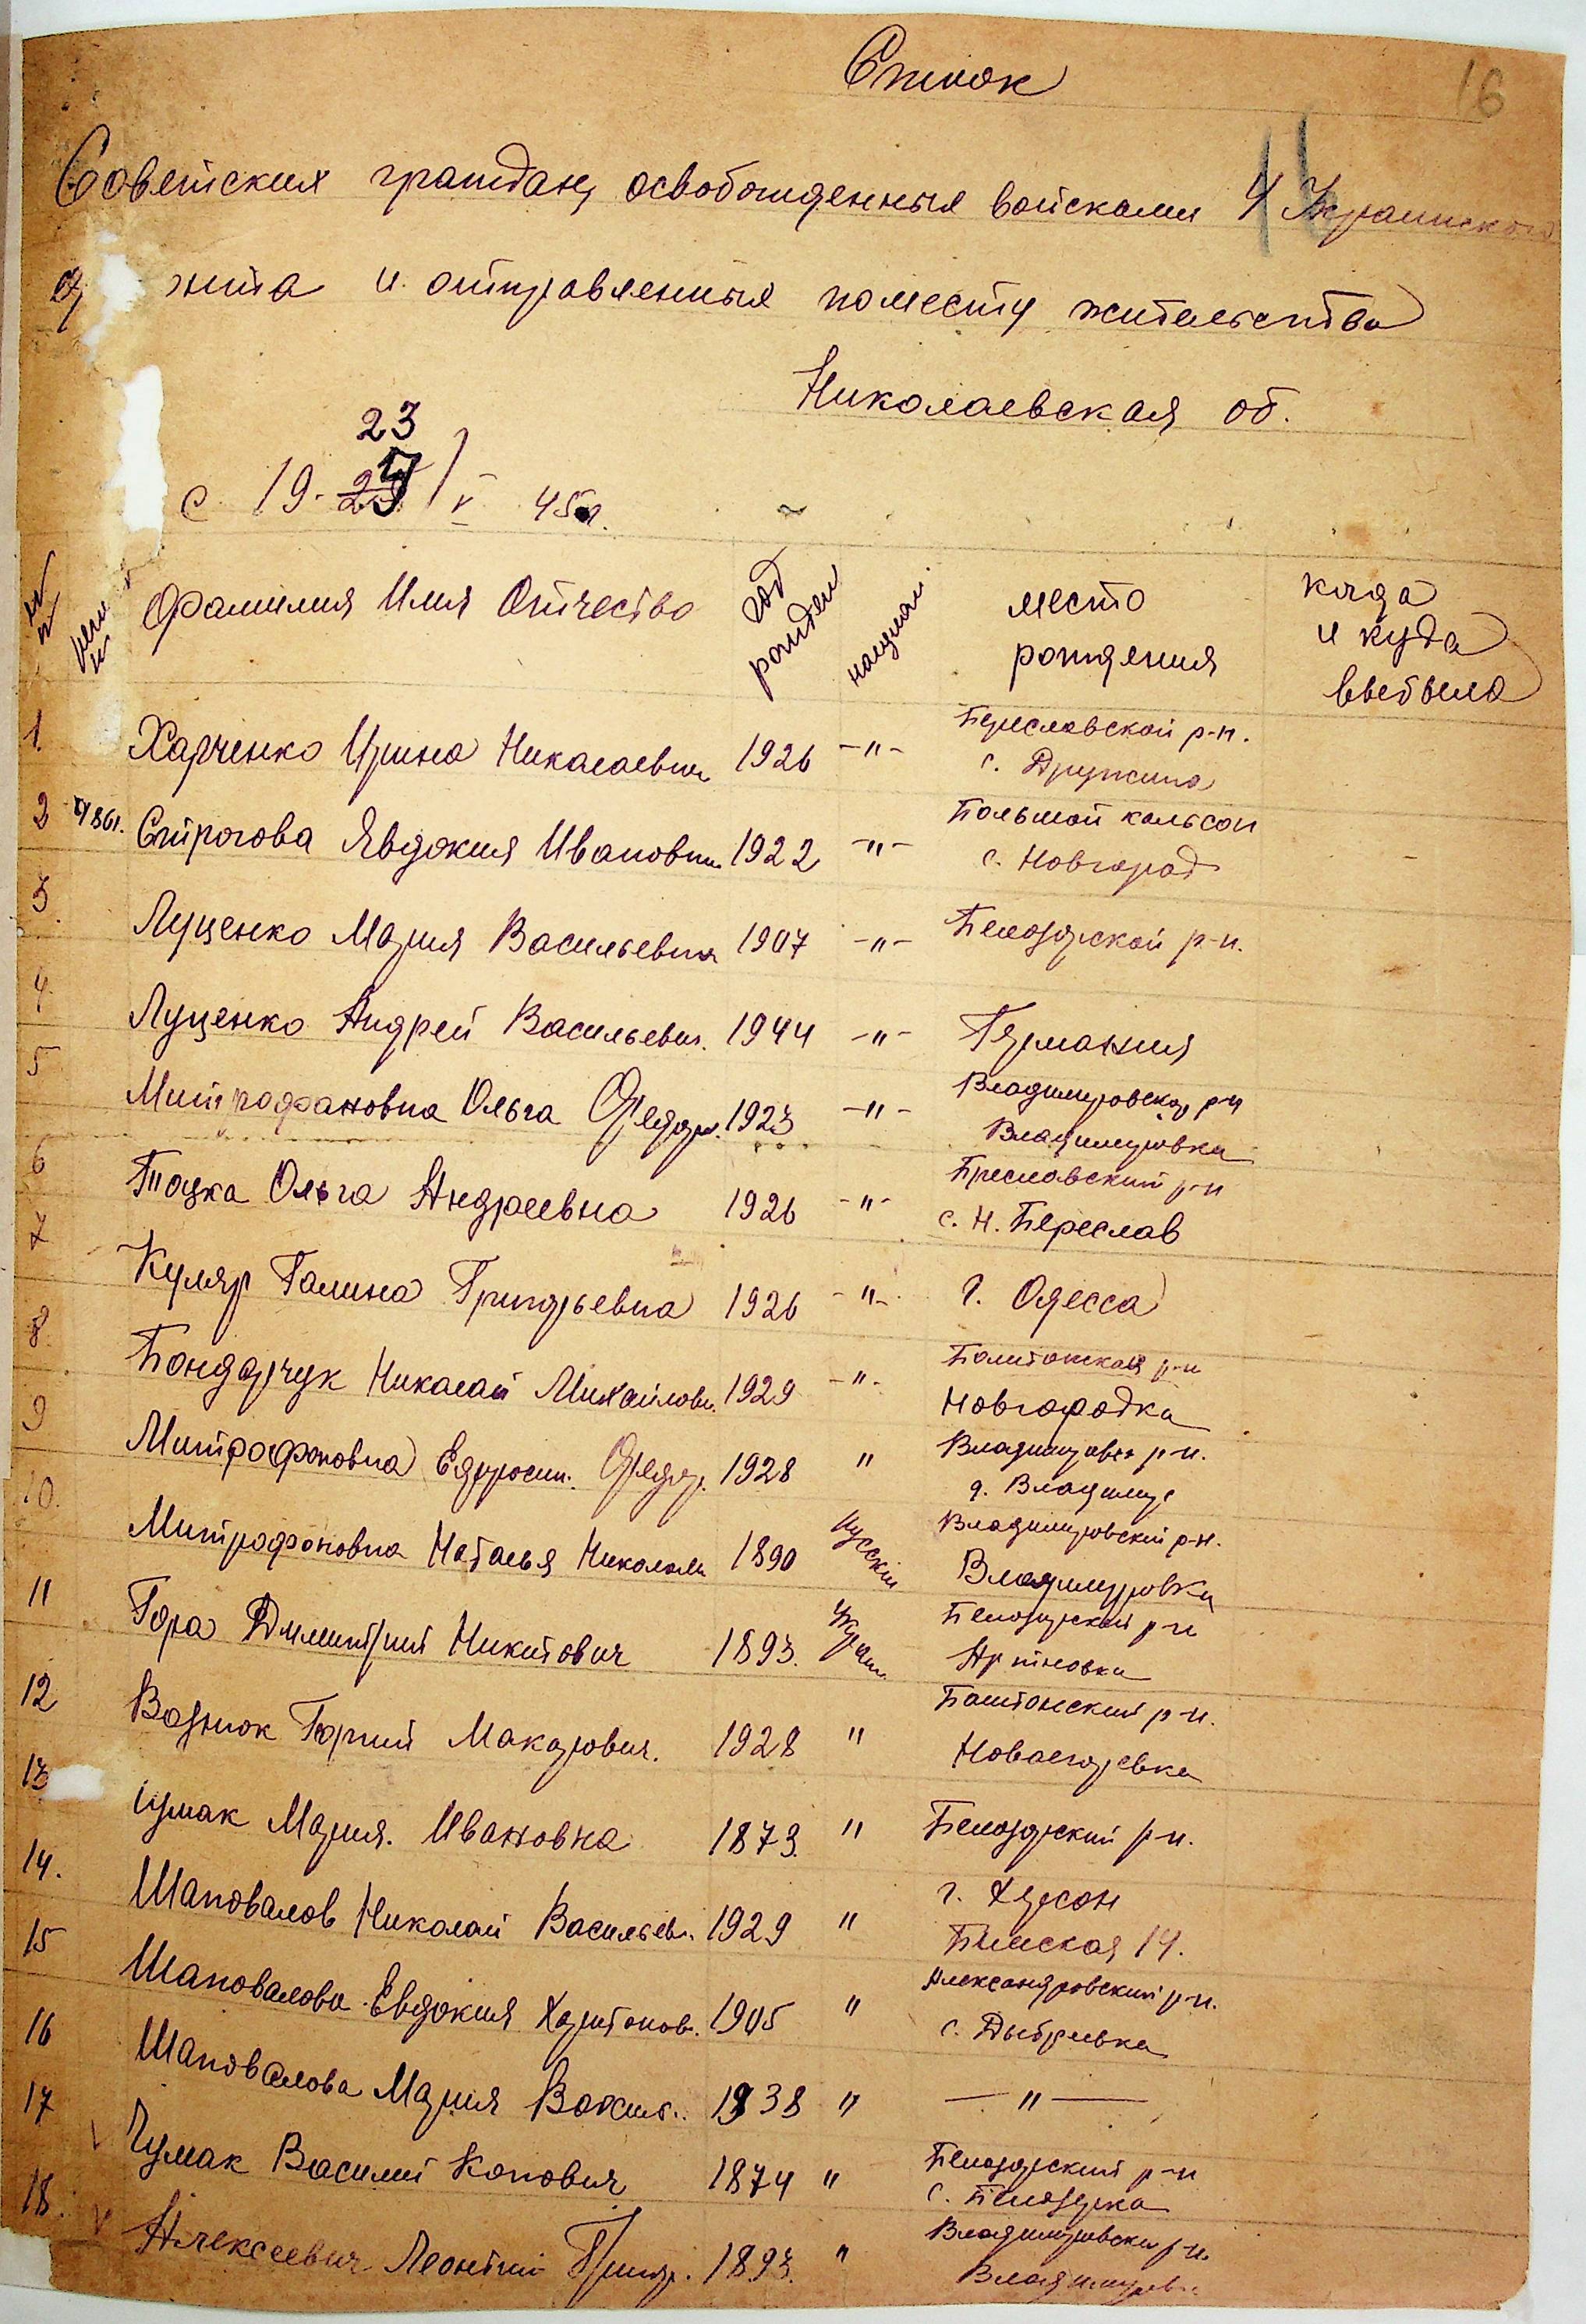 Список
16
Советских граждан, освобожденныя войсками 4 Украинского
ф нта и отправленныя поместу жительства
Николаевская об.
23
с 19- /V 45г.
Фамилия Имя Отчество год рожден национал. место рождения когда и куда выбыло
1. Харченко Ирина Николаевна 1926 -"- Береславской р-н. с. Дружино
2 Строгова Явдокия Ивановна 1922 -"- Большой кальсон с. Новгород
3. Луценко Мария Васильевна 1907 -"- Белозорской р-н.
4. Луценко Андрей Васильевич. 1944 -"- Германия
5 Митрофановна Ольга Федор. 1923 -"- Владимировског р-н Владимировка
6 Тоцка Ольга Андреевна 1926 -"- Бреславский р-н с. Н. Береслав
7 Куляр Галина Григорьевна 1926 -"- г. Одесса
8. Бондарчук Николай Михайлови. 1929 -"- р-н Новгородка
9 Митрофановна Ефросин. Федор. 1928 " р-н. д. Владимир
10. Митрофановна Наталья Николаев 1890 Русский Владимировский р-н. Владимировка
11 Гора Дмитрий Никитович 1893. Украин. Белозорской р-н Артновка
12 Вазнюк Горгий Макарович. 1928 " Баштонский р-н. Новоегоревка
13 умак Мария. Ивановна 1873. " Белозорский р-н.
14. Шаповалов Николай Васильев. 1929 " г. Херсон 14.
15 Шаповалова Евдокия Харитонов. 1905 " Александровский р-н. с. Дыбривка
16 Шаповалова Мария Васил.. 1938 " — " —
17 V Чумак Василий Конович 1874 " Белозорский р-н с. Белозерка
18. V Алексеевич Леонтий Григор. 1893. " Владимировски р-н.